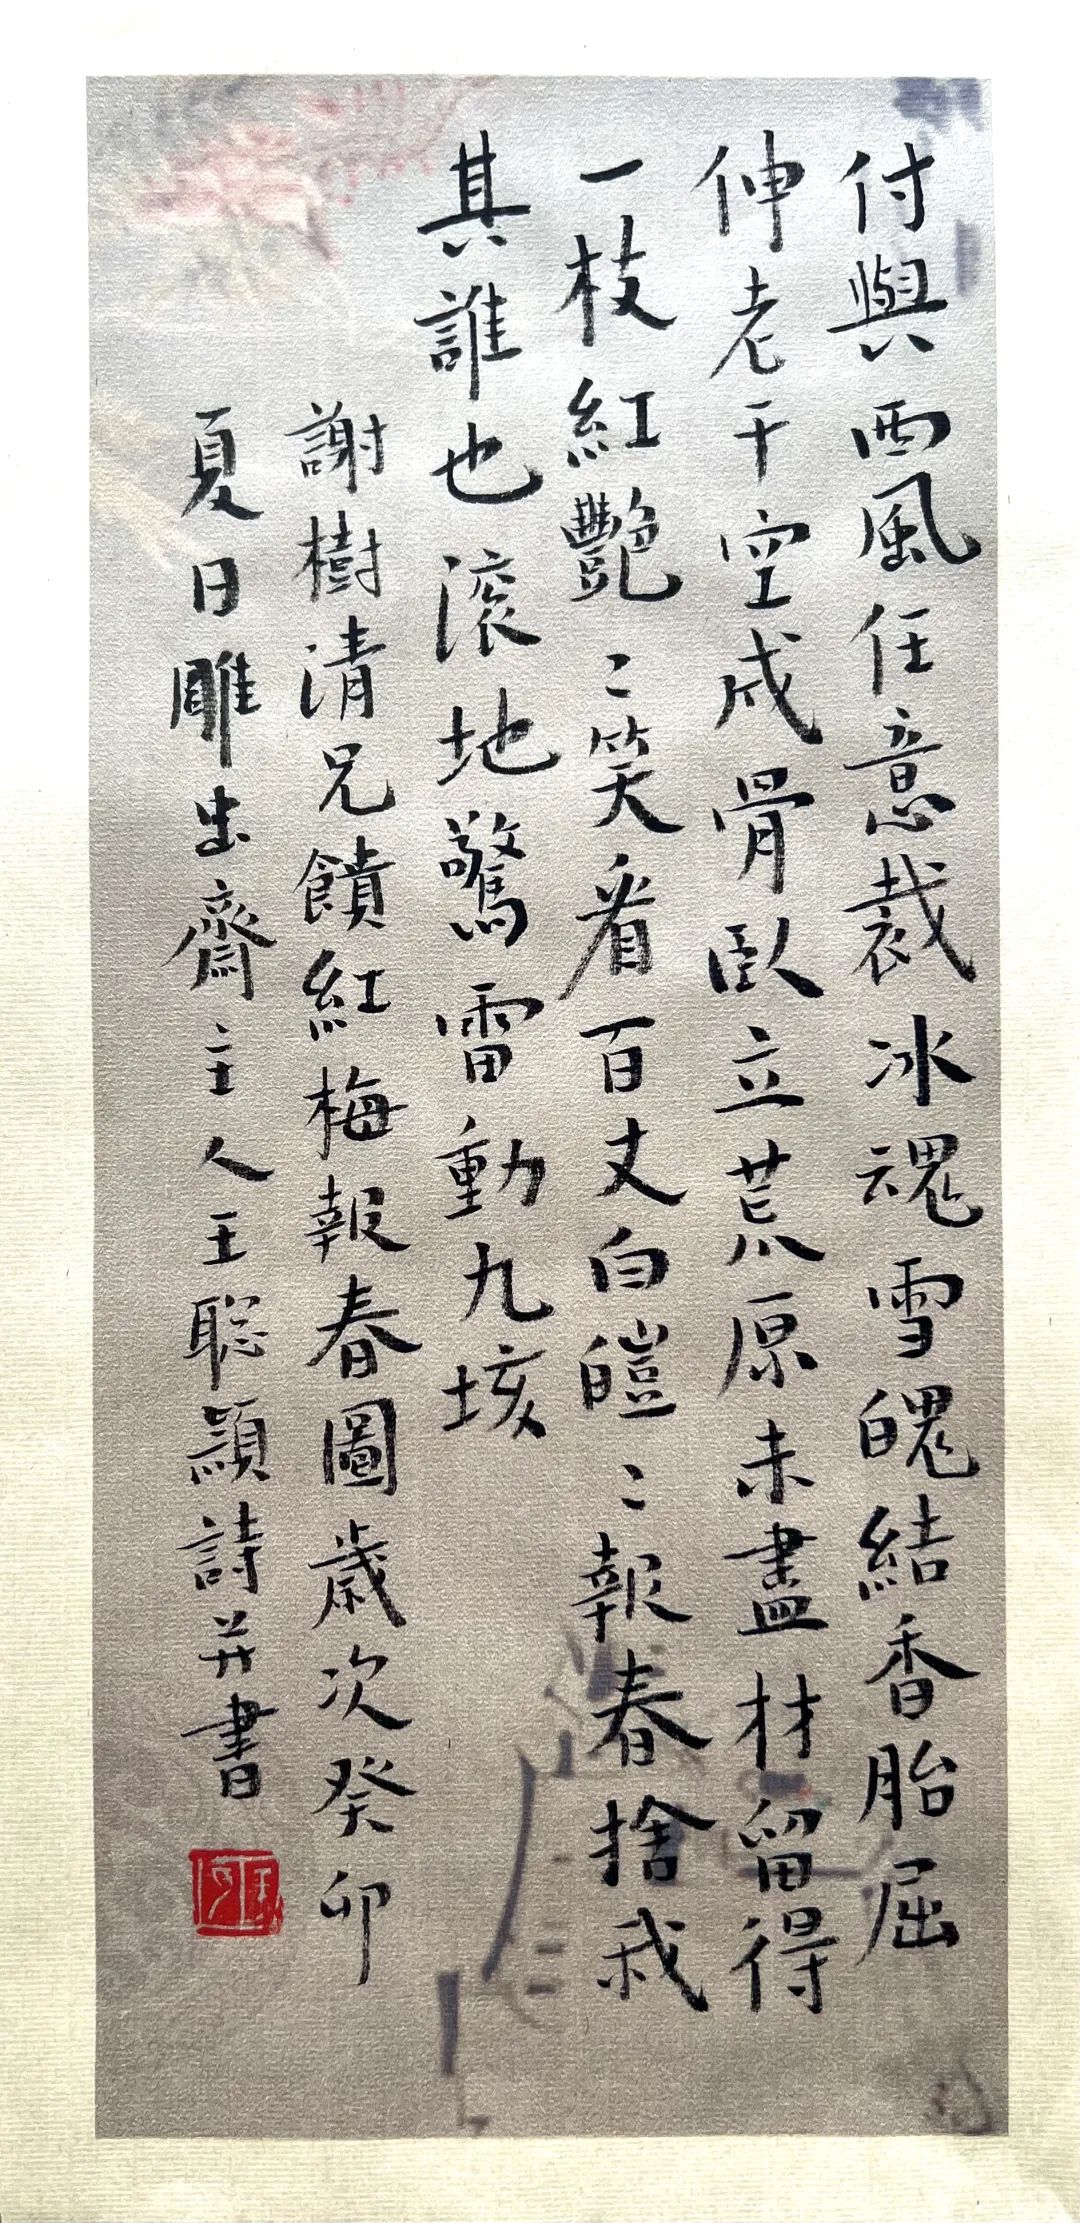 付與西風任意裁冰魂雪魄結香胎屈
伸老干空成骨臥立荒原未盡材留得
一枝紅艷〻笑看百丈白皚〻報春捨我
其誰也滾地驚雷動九垓
謝樹清兄饋紅梅報春圖歲次癸卯
夏日雕出齋主人王聰顯詩并書